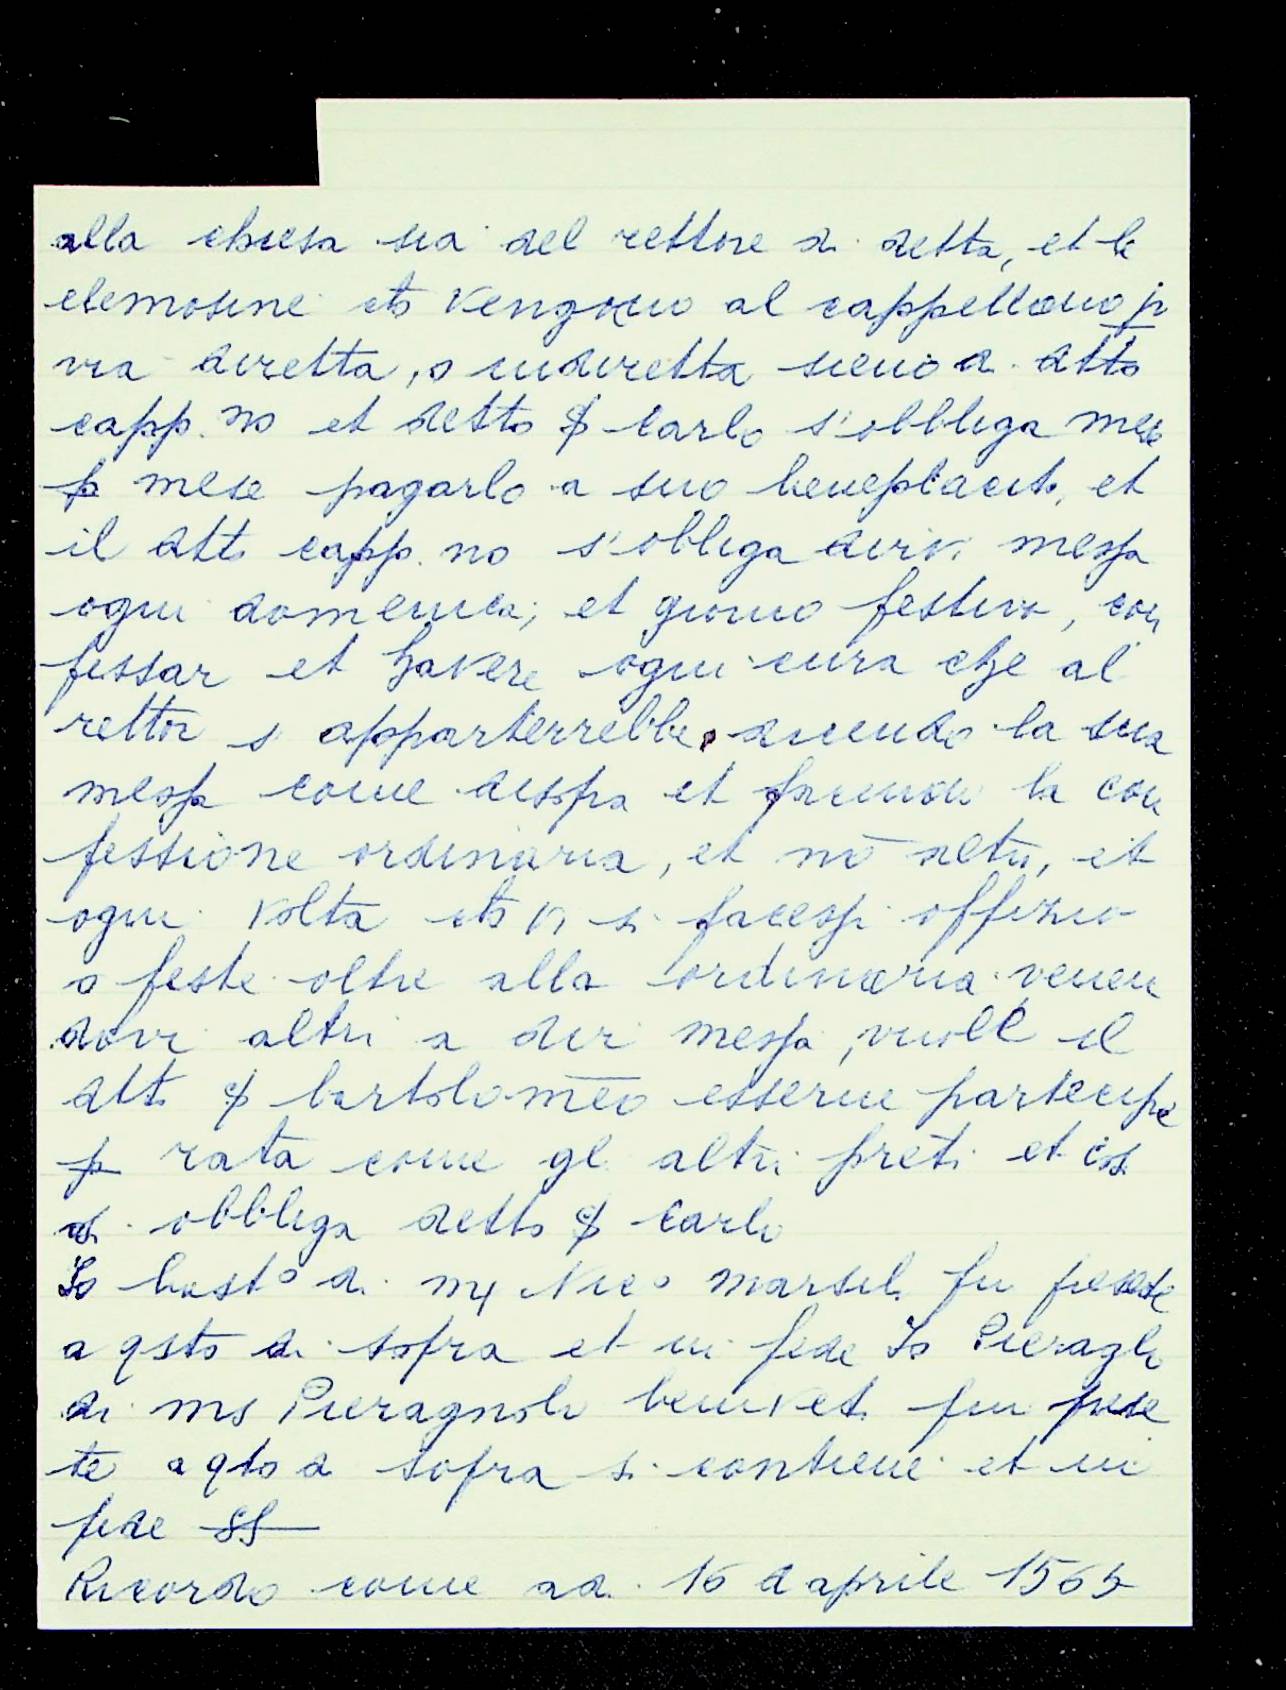 alla chiesa sia del rettore di detta, et le
elemosine che vengono al cappellano p
via diretta, o indiretta sieno di dtto
capp.no et detto Carlo s'obbliga mese
p mese pagarlo a suo beneplacito, et
il dtto capp.no s'obliga dirvi messa
ogni domenica, et giorno festivo, con
fessar et havere ogni cura che al
rettor s apparterrebbe, dicendo la sua
messa come disopra et facendo la con
fessione ordinaria, et nō altri, et
ogni volta che vi si facessi offizio
o feste oltre alla ordinaria venen
dovi altri a dir messa, vuole il
dtto bartolomēo esserne partecipe
p rata come gl altri preti et cosi
si obbliga detto Carlo
Io bast° di Nic° marsili fu
a qsto di sopra et in fede Io Pieragli
di ms Pieragnolo fui prese
te a qto di sopra si contiene et in
fede
Ricordo come adi 16 d aprile 1565